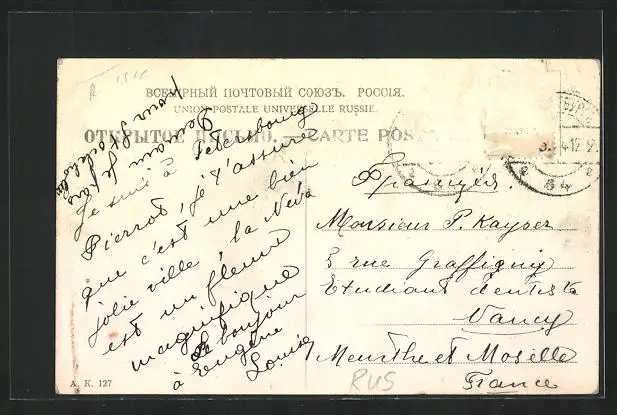 ВСЕМІРНЫЙ ПОЧТОВЫЙ СОЮЗЪ. РОССІЯ.
UNION POSTALE UNIVERSELLE RUSSIE.
ОТКРЫТОЕ ПИСЬМО. — CARTE POST
Je suis à Petersbourg
Pierrot, je t'assure
que c'est une bien
jolie ville, la Néva
est un fleuve
magnifique
Le bonjour
à Eugène
Louis
Франція.
Monsieur P. Kayser
3 rue Graffigny
Etudiant dentiste
Nancy
Meurthe et Moselle
France
RUS
А. К. 127